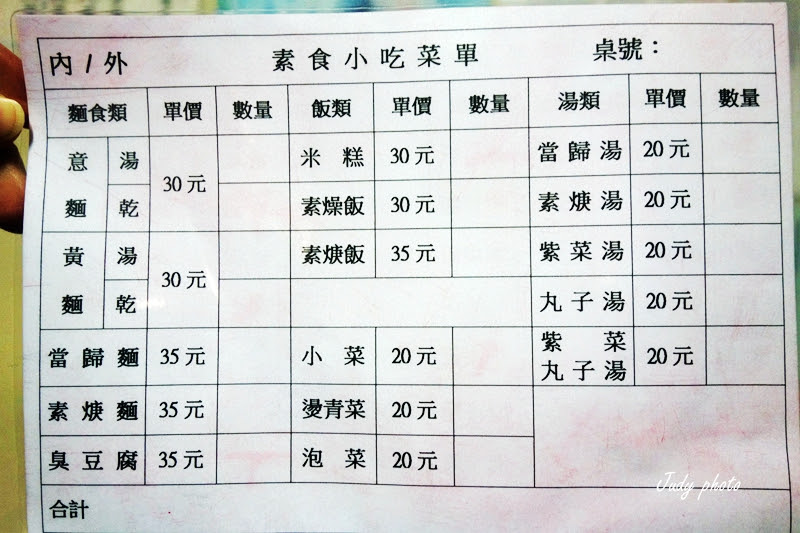 內 / 外 素食小吃菜單 桌號：
麵食類 單價 數量 飯類 單價 數量 湯類 單價 數量
意麵 湯 30元 米糕 30元 當歸湯 20元
乾 素燥飯 30元 素焿湯 20元
黃麵 湯 30元 素焿飯 35元 紫菜湯 20元
乾 丸子湯 20元
當歸麵 35元 小菜 20元 紫菜丸子湯 20元
素焿麵 35元 燙青菜 20元
臭豆腐 35元 泡菜 20元
合計
Judy photo